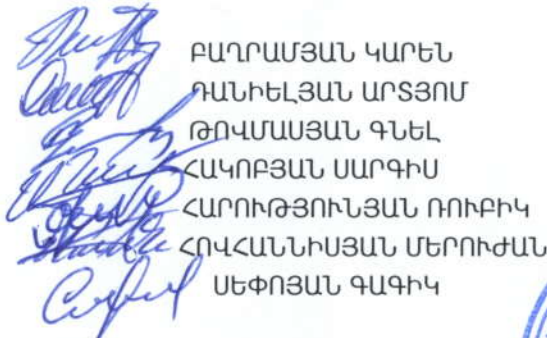 ԲԱՂՐԱՄՅԱՆ ԿԱՐԵՆ
ԴԱՆԻԵԼՅԱՆ ԱՐՏՅՈՄ
ԹՈՎՄԱՍՅԱՆ ԳՆԵԼ
ՀԱԿՈԲՅԱՆ ՍԱՐԳԻՍ
ՀԱՐՈՒԹՅՈՒՆՅԱՆ ՌՈՒԲԻԿ
ՀՈՎՀԱՆՆԻՍՅԱՆ ՄԵՐՈՒԺԱՆ
ՍԵՓՈՅԱՆ ԳԱԳԻԿ